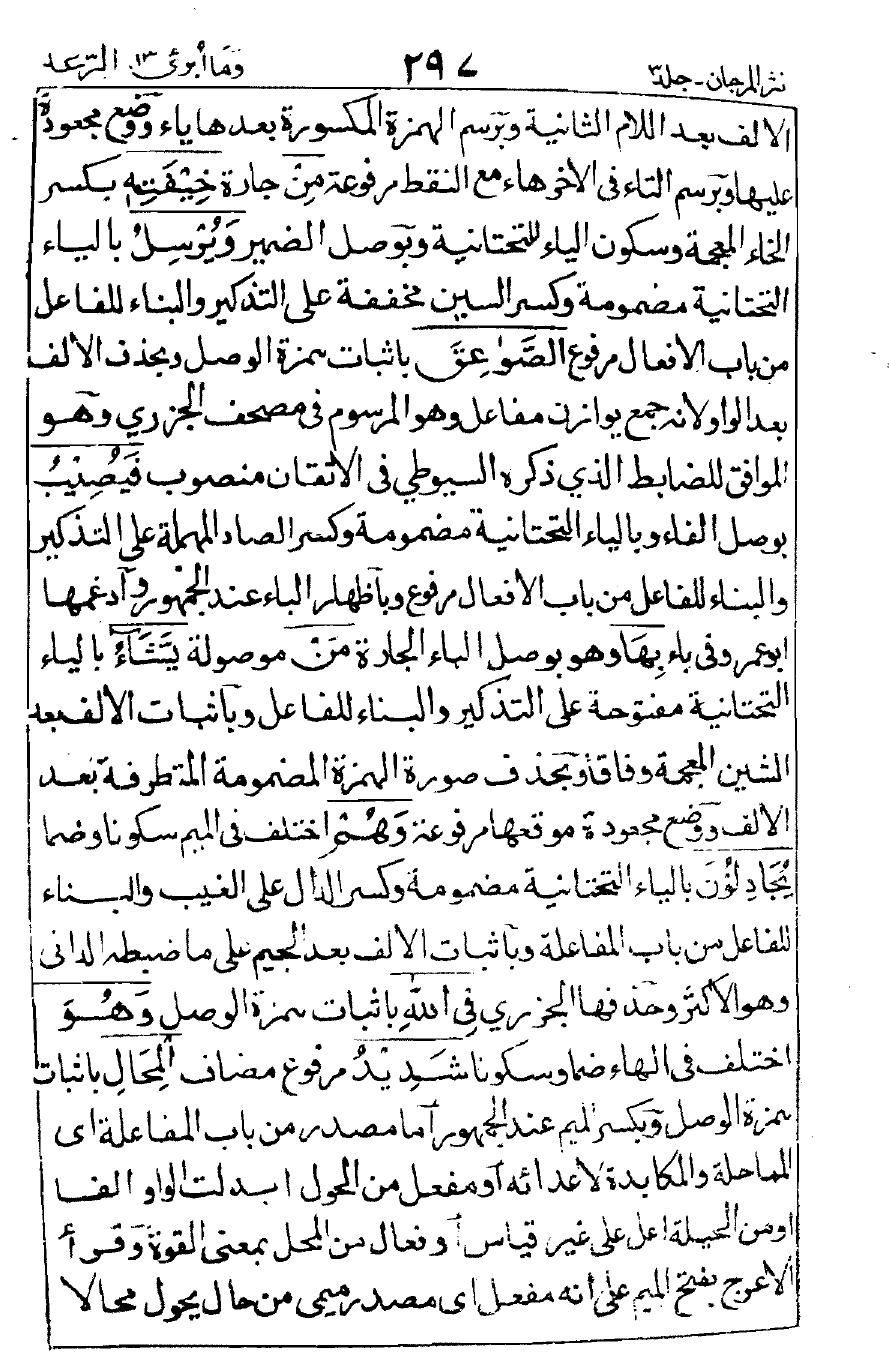 نثر المرجان - جلد ٣ ٢٩٧ وما أبرئ ١٣ الرعد
الالف بعد اللام الثانية وبرسم الهمزة المكسورة بعدها ياء ووضع مجعودة
عليها وبرسم التاء فى الاخرهاء مع النقط مرفوعة مِنْ جارة خِيْفَتِهٖ بكسر
الخاء المعجمة وسكون الياء التحتانية وبوصل الضمير وَيُرْسِلُ بالياء
التحتانية مضمومة وكسر السين مخففة على التذكير والبناء للفاعل
من باب الافعال مرفوع الصَّوٰعِقَ باثبات همزة الوصل وبحذف الالف
بعد الواو لانه جمع يوازن مفاعل وهو المرسوم فى مصحف الجزري وهو
الموافق للضابط الذي ذكره السيوطي فى الاتقان منصوب فَيُصِيْبُ
بوصل الفاء وبالياء التحتانية مضمومة وكسر الصاد المهملة على التذكير
والبناء للفاعل من باب الافعال مرفوع وباظهار الباء عند الجمهور وادغمها
ابو عمرو فى باء بِهَا وهو بوصل الباء الجارة مَنْ موصولة يَّشَآءُ بالياء
التحتانية مفتوحة على التذكير والبناء للفاعل وباثبات الالف بعد
الشين المعجمة وفاقا وبحذف صورة الهمزة المضمومة المتطرفة بعد
الالف ووضع مجعودة موقعها مرفوعة وَهُمْ اختلف فى الميم سكونا وضما
يُجَادِلُوْنَ بالياء التحتانية مضمومة وكسر الدال على الغيب والبناء
للفاعل من باب المفاعلة وباثبات الالف بعد الجيم على ما ضبطه الدانى
وهو الاكثر وحذفها الجزري فِي اللهِ باثبات همزة الوصل وَهُوَ
اختلف فى الهاء ضما وسكونا شَدِيْدُ مرفوع مضاف الْمِحَالِ باثبات
همزة الوصل وبكسر الميم عند الجمهور اما مصدر من باب المفاعلة اى
المماحلة والمكابدة لاعدائه او مفعل من الحول ابدلت الواو الفا
او من الحيلة اعل على غير قياس او فعال من المحل بمعنى القوة وقرأ
الاعرج بفتح الميم على انه مفعل اى مصدر ميمى من حال يحول محالا